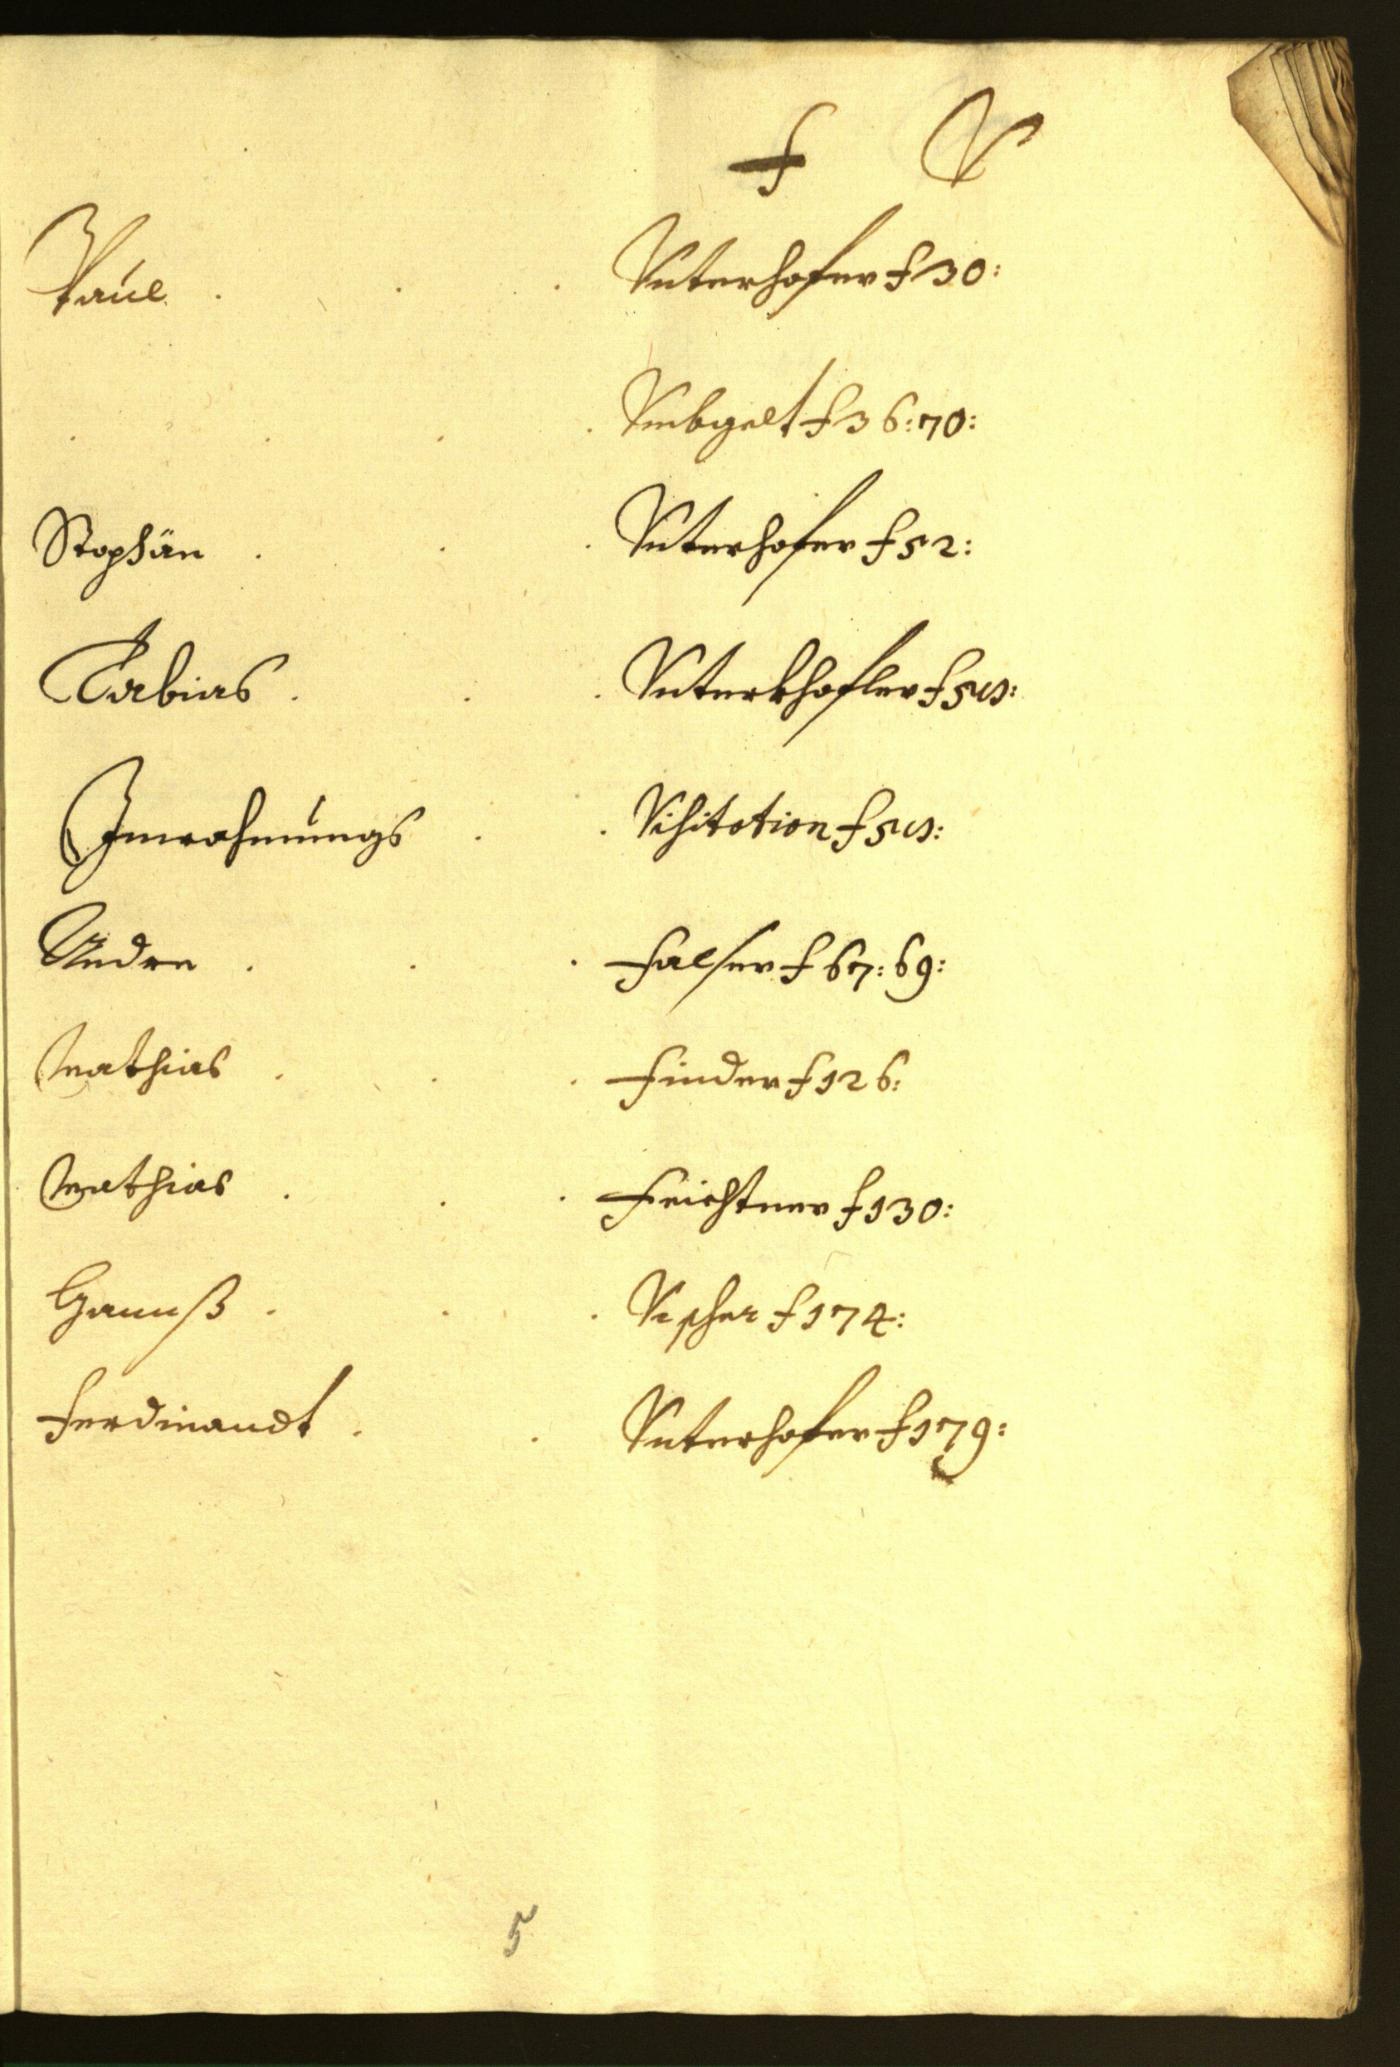 F V
Paul . . . Vnterhofer f 30:
. . . . Vmbgelt f 36: 70:
Stephän . . . Vnterhofer f 52:
Tobias . . . Vnterkhofler f
. . Visitation f
Andre . . . Falser f 67: 69:
Mathias . . . Finder f 126:
Mathias . . . Feichtner f 130:
Hannß . . . Vischer f 174:
Ferdinandt . . Vnterhofer f 179:
5